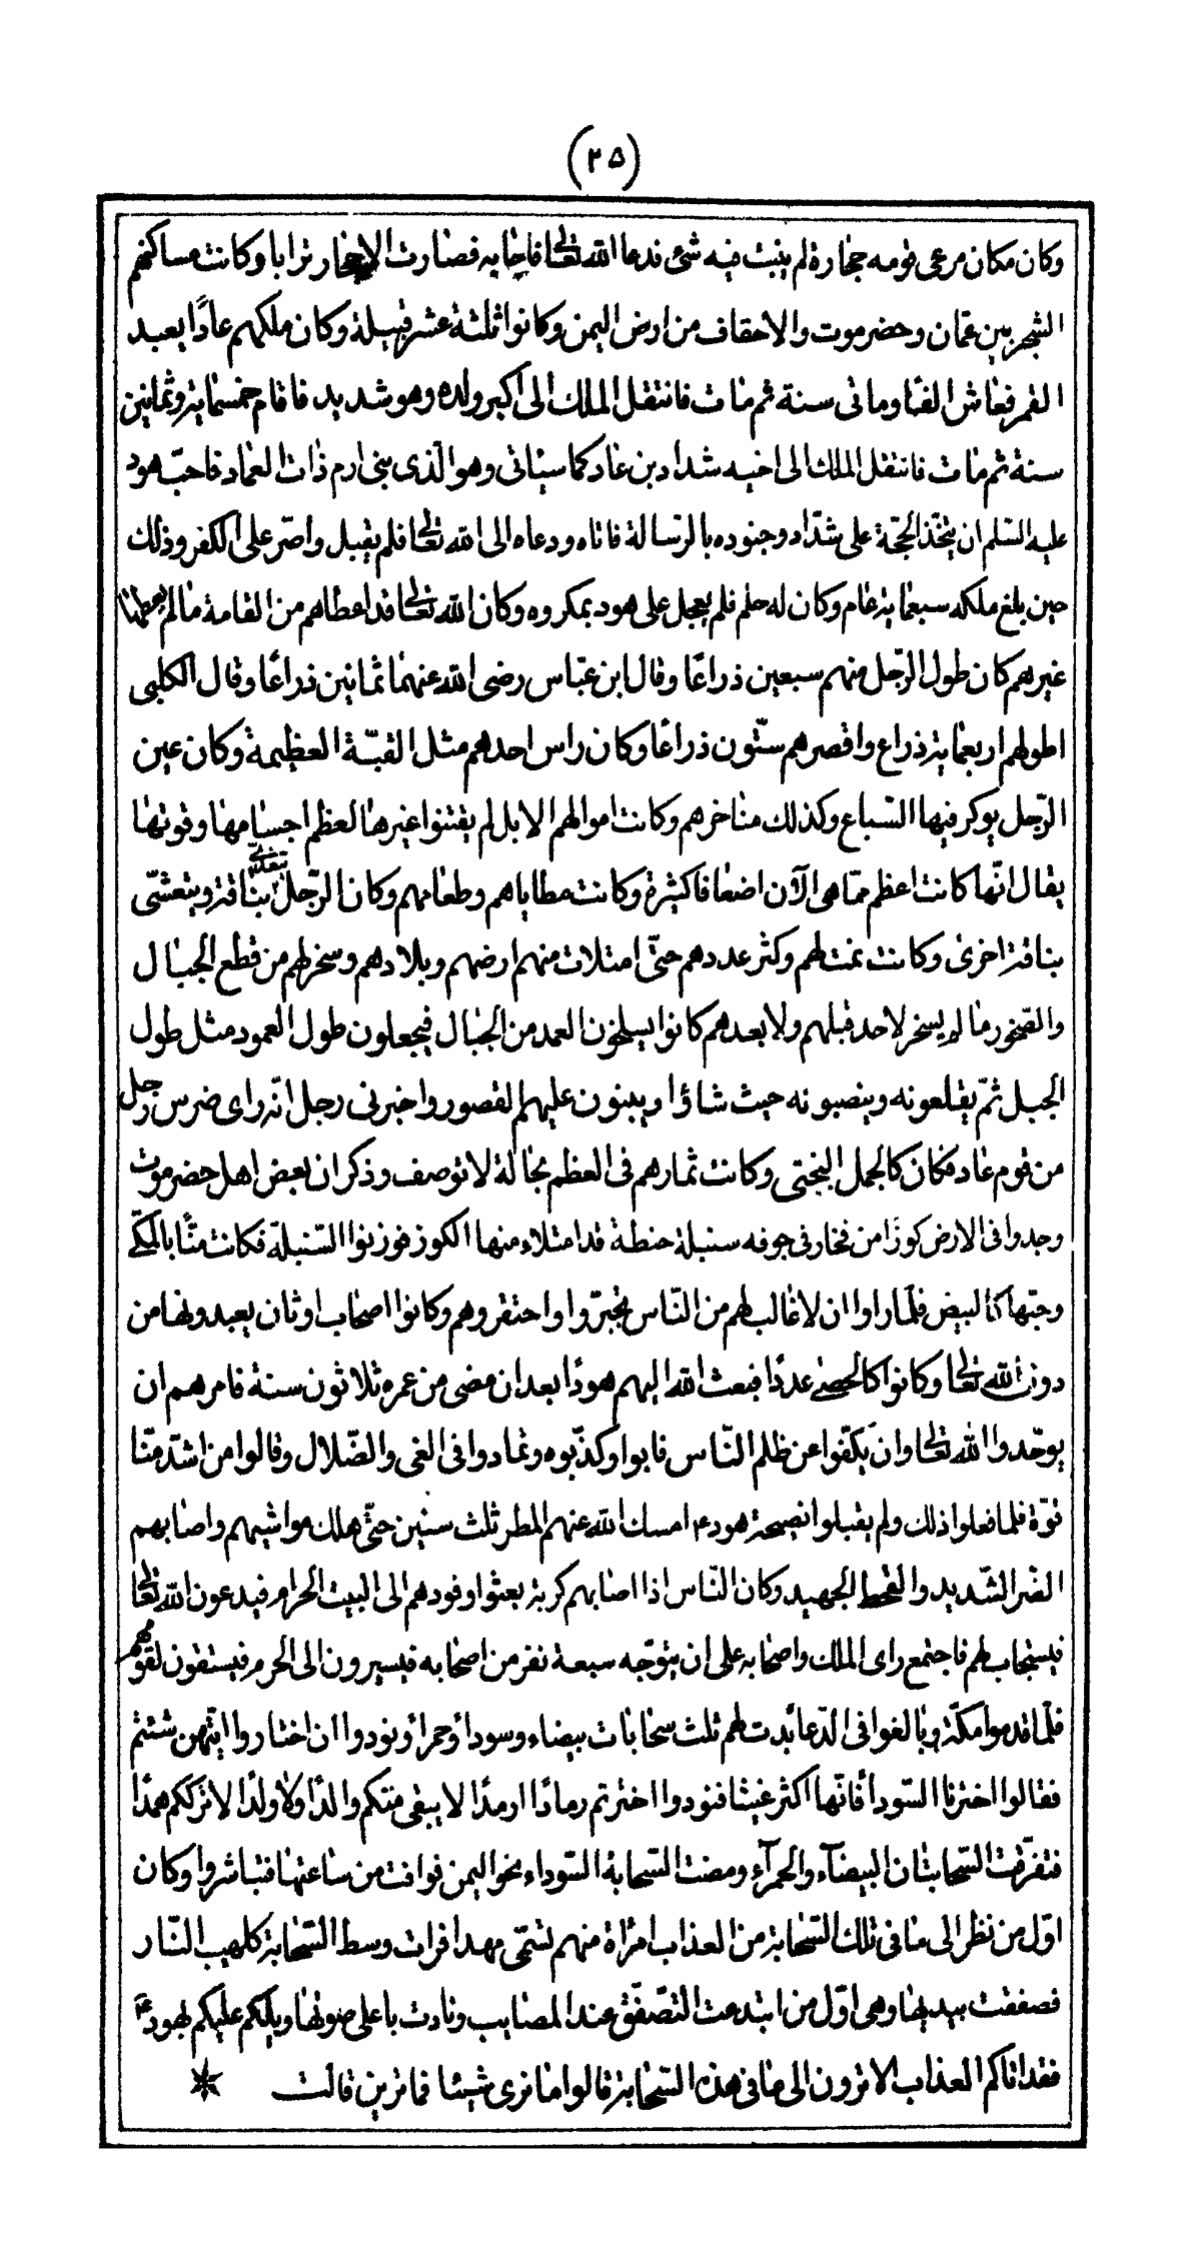 (٢٥)
وكان مكان مرعى قومه حجارة لم ينبت فيه شئ فدعا الله تعالى فاجابه فصارت الاحجار ترابا وكانت مساكنهم
الشجر بين عمّان وحضرموت والاحقاف من ارض اليمن وكانوا ثلثة عشر قبيلة وكان ملكهم عادًا يعبد
القمر فعاش الفًا وماتى سنة ثم مات فانتقل الملك الى اكبر ولده وهو شديد فاقام خمسماية وثمانين
سنة ثم مات فانتقل الملك الى اخيه شداد بن عاد كما سياتى وهو الّذى بنى ارم ذات العماد فاحبّ هود
عليه السّلم ان يتّخذ الحجّة على شدّاد وجنوده بالرّسالة فاتاه ودعاه الى الله تعالى فلم يقبل واصّر على الكفر وذلك
حين بلغ ملكه سبعماية عام وكان له حلم فلم يعجل على هود بمكروه وكان الله تعالى قد اعطاهم من القامة مالم يعطها
غيرهم كان طول الرّجل منهم سبعين ذراعًا وقال ابن عبّاس رضى الله عنهما ثمانين ذراعًا وقال الكلبى
اطولهم اربعماية ذراع واقصرهم ستّون ذراعًا وكان راس احدهم مثل القبّة العظيمة وكان عين
الرّجل يوكر فيها السّباع وكذلك مناخرهم وكانت اموالهم الابل لم يقتنوا غيرها لعظم اجسامها وقوتها
يقال انّها كانت اعظم ممّا هى الآن اضعافا كثيرة وكانت مطاياهم وطعامهم وكان الرّجل يتغدّى بناقة ويتعشّى
بناقة اخرى وكانت نمت لهم وكثر عددهم حتّى امتلات منهم ارضهم وبلادهم وسخر لهم من قطع الجبال
والصّخور ما لم يسخر لاحد قبلهم ولا بعدهم كانوا يسلخون العمد من الجبال فيجعلون طول العمود مثل طول
الجبل ثمّ يقلعونه وينصبونه حيث شاؤا ويبنون عليهم القصور واخبرنى رجل انّه راى ضرس رجل
من قوم عاد فكان كالجمل البختى وكانت ثمارهم فى العظم بحالة لا توصف وذكر ان بعض اهل حضرموت
وجدوا فى الارض كوزًا من فخار فى جوفه سنبلة حنطة قد امتلاء منها الكوز فوزنوا السّنبلة فكانت منًّا بالمكّى
وحبّها كالبيض فلمّا راوا ان لا غالب لهم من النّاس تجبّروا واحتقروهم وكانوا اصحاب اوثان يعبدونها من
دون الله تعالى وكانوا كالحصى عددًا فبعث الله اليهم هودًا بعد ان مضى من عمره ثلاثون سنة فامرهم ان
يوحّدوا الله تعالى وان يكفّوا عن ظلم النّاس فابوا وكذّبوه وتمادوا فى الغى والضّلال وقالوا من اشدّ منّا
قوّة فلما فعلوا ذلك ولم يقبلوا نصيحة هود ع امسك الله عنهم المطر ثلث سنين حتّى هلك مواشيهم واصابهم
الضّر الشّديد والقحط الجهيد وكان النّاس اذا اصابهم كربة بعثوا وفودهم الى البيت الحرام فيدعون الله تعالى
فيستجاب لهم فاجتمع راى الملك واصحابه على ان يتوجّه سبعة نفر من اصحابه فيسيرون الى الحرم فيستقون لقومهم
فلمّا قدموا مكّة وبالغوا فى الدّعا بدت لهم ثلث سحابات بيضاء وسوداء وحمراء ونودوا ان اختاروا ايّتهن شئتم
فقالوا اخترنا السّوداء فانّها اكثر غيثا فنودوا اخترتم رمادًا ارمدًا لا يبقى منكم والدًا ولا ولدًا الا تركتكم همدًا
فتفرّقت السّحابتان البيضآء والحمرآء ومضت السّحابة السّوداء نحو اليمن فوافت من ساعتها فتباشروا وكان
اوّل من نظر الى ما فى تلك السّحابة من العذاب امراة منهم تسمّى مهد افرات وسط السّحابة كلهيب النّار
فصفقت بيديها وهى اوّل من ابتدعت التصّفّق عند المصايب ونادت باعلى صوتها ويلكم عليكم بهود ع
فقد اتاكم العذاب الا ترون الى ما فى هذه السّحابة قالوا ما نرى شيئا فما ترين قالت